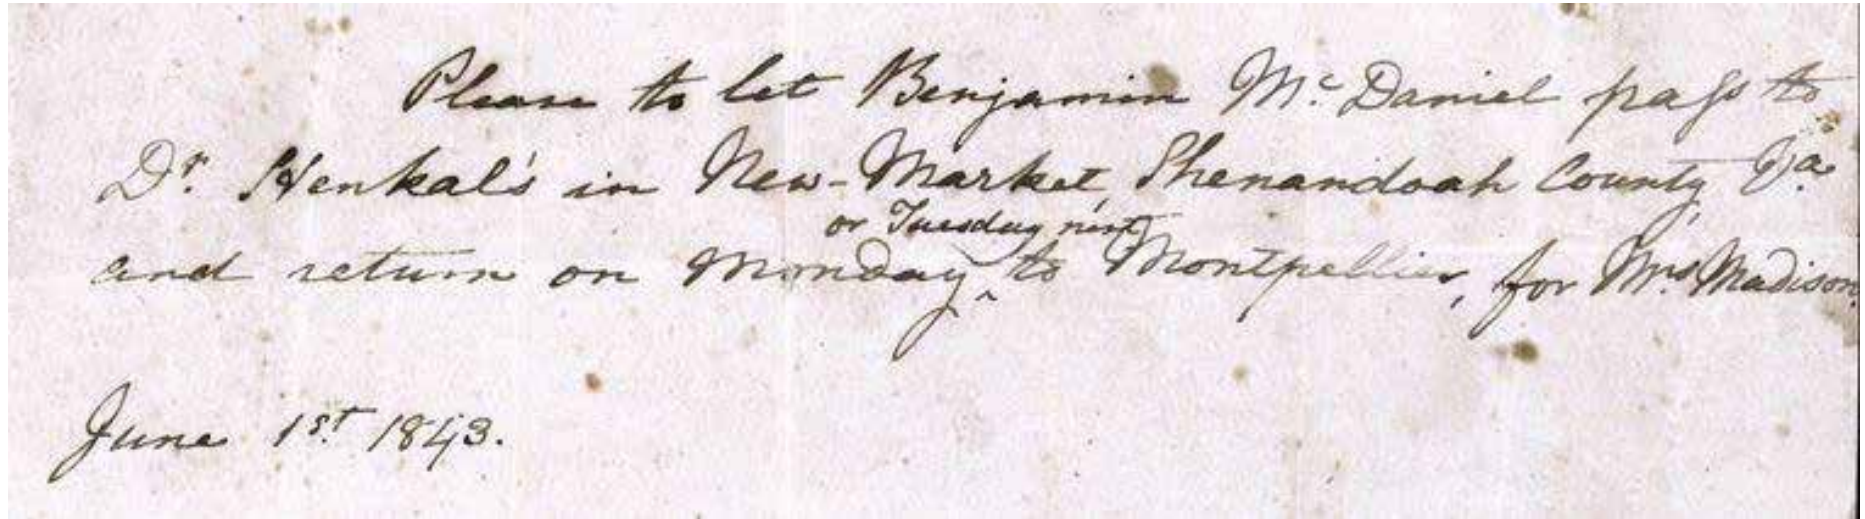 Please to let Benjamin Mc Daniel pass to
Dr. Henkal's in New-Market, Shenandoah County, Va.
or Tuesday next
and return on Monday ^ to Montpellier, for Mrs. Madison
June 1st. 1843.